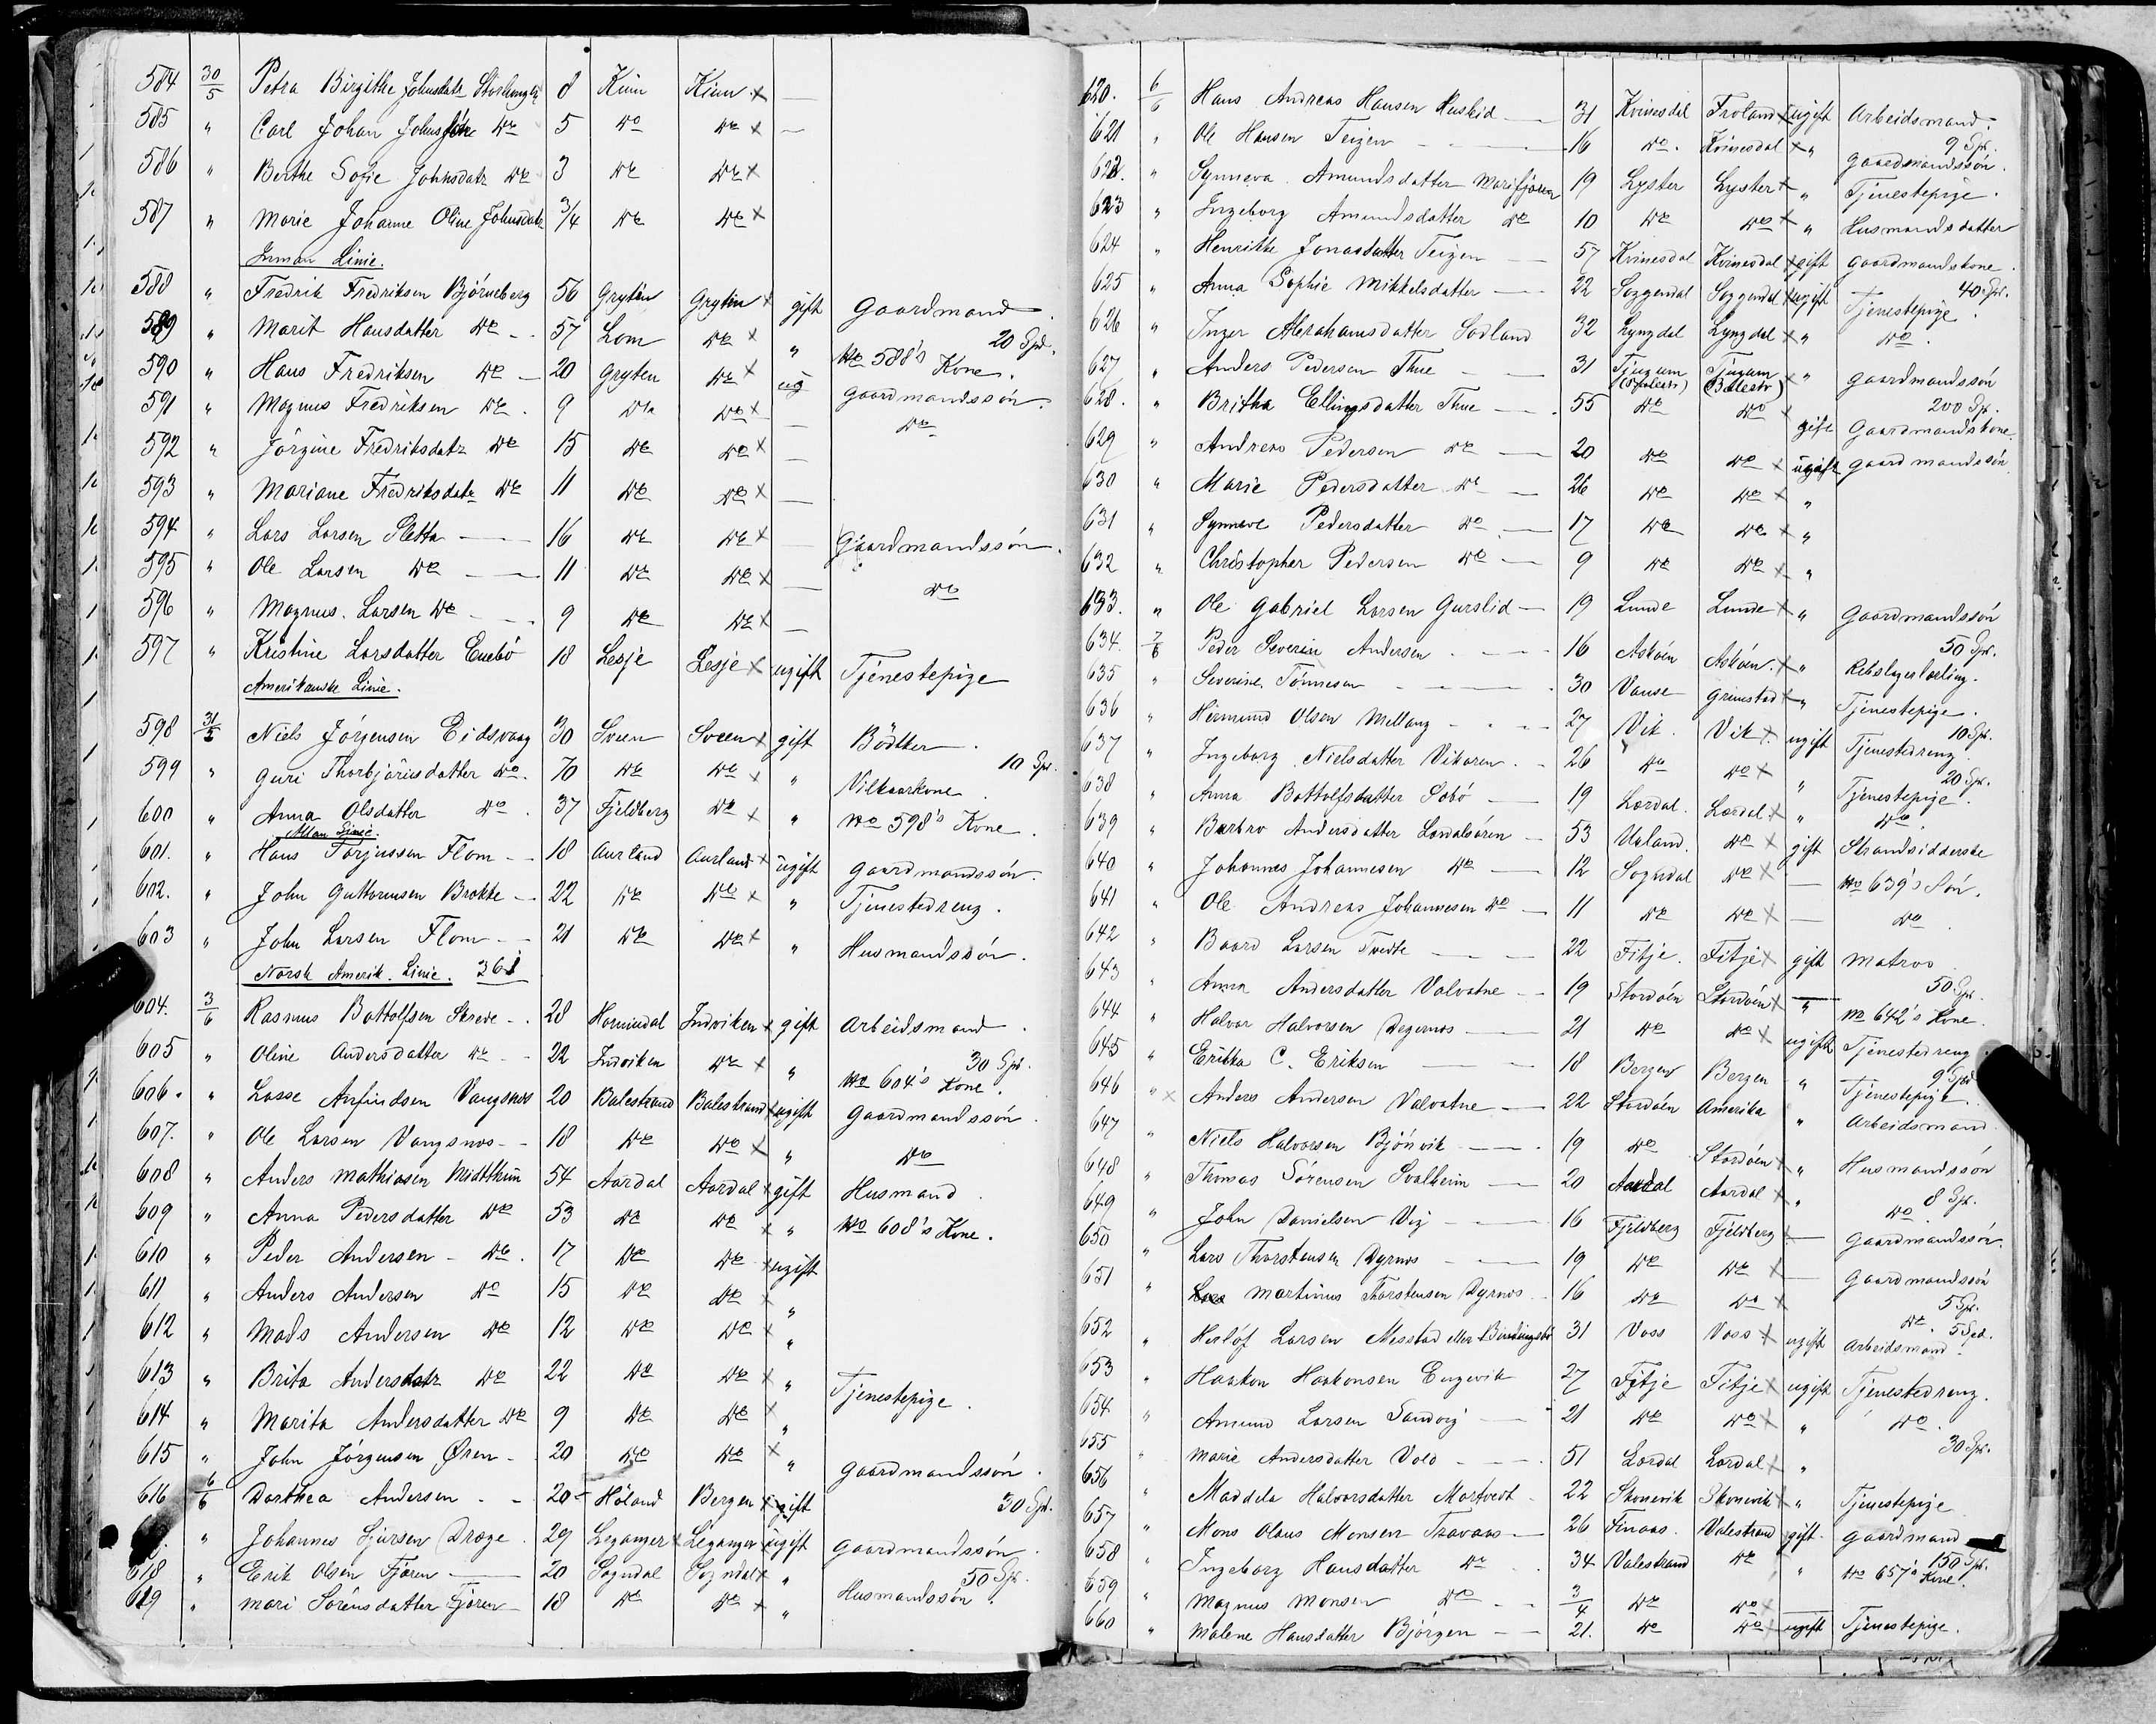 584 30/5 Petra Birgithe Johnsdatr 8 Kinn Kinn x —
585 " Carl Johan Johnssön Do 5 Do Do x —
586 " Berthe Sofie Johnsdatr Do 3 Do Do x
587 " Marie Johanne Oline Johnsdatr 3/4 Do Do x
Inman Linie.
588 " Fredrik Fredriksen Björneberg 56 Gryten Gryten x gift Gaardmand
20 Spd.
589 " Marit Hansdatter Do - 57 Lom Do x " No 588's Kone.
590 " Hans Fredriksen Do - 20 Gryten Do x ug Gaardmandssön.
591 " Magnus Fredriksen Do. 9 Do Do x — Do
592 " Jörgine Fredriksdatr Do 15 Do Do x —
593 " Mariane Fredriksdatr Do 11 Do Do x —
594 " Lars Larsen Sletta — 16 Do Do x — Gaardmandssön.
595 " Ole Larsen Do — 11 Do Do x — Do
596 " Magnus. Larsen Do - 9 Do Do x —
597 " Kristine Larsdatter Enebö 18 Lesje Lesje x ugift Tjenestepige
Amerikanske Linie.
598 31/5 Niels Jörgensen Eidsvaag 30 Sveen Sveen x gift Bödker.
10 Spd.
599 " Guri Thorbjörnsdatter Do. 70 Do Do x " Vilkaarkone
600 " Anna Olsdatter Do. 37 Fjeldberg Do x " No 598's Kone.
Allan Linie.
601. " Hans Torjussen Flom - - 18 Aurland Aurland x ugift Gaardmandssön.
602. " John Guttormsen Brekke - 22 Do Do x " Tjenestedreng.
603 " John Larsen Flom - - 21 Do Do x " Husmandssön.
Norsk Amerik. Linie. 361
604. 3/6 Rasmus Bottolfsen Skrede - . 28 Hornindal Indviken x gift Arbeidsmand.
30 Spd.
605 " Oline Andersdatter Do - - 22 Indviken Do x " No 604's Kone.
606. " Lasse Anfindsen Vangsnæs 20 Balestrand Balestrand x ugift Gaardmandssön.
607. " Ole Larsen Vangsnæs - - 18 Do Do x " Do
608 " Anders Mathiasen Midtthun 54 Aardal Aardal x gift Husmand.
609 " Anna Pedersdatter Do 53 Do Do x " No 608's Kone.
610 " Peder Andersen - Do. 17 Do Do x ugift
611 " Anders Andersen Do 15 Do Do x "
612 " Mads Andersen Do 12 Do Do x "
613 " Brita Andersdatr Do 22 Do Do x " Tjenestepige.
614 " Marita Andersdatter Do 9 Do Do x "
615 " John Jörgensen Øren - 20 Do Do x " Gaardmandssön.
30 Spd.
616 6/6 Dorthea Andersen - - 20 Höland Bergen x gift
" Johannes Sjursen Drage. 29 Leganger x Leganger x ugift Gaardmandssön.
50 Spd.
618 " Erik Olsen Fjæren — 20 Sogndal Sogndal x " Husmandssön.
619 " Mari Sörensdatter Fjæren - 18 Do Do x "
620. 6/6 Hans Andreas Hansen Huslid — 31 Kvinesdal Froland x ugift Arbeidsmand.
9 Spd.
621 " Ole Hansen Teigen — 16 Do. Kvinesdal x " Gaardmandssön.
622. " Synneva Amundsdatter Marifjæren 19 Lyster Lyster x " Tjenestepige.
623 " Ingeborg Amundsdatter Do 10 Do Do x " Husmandsdatter
624 " Henrikke Jonasdatter Teigen — 57 Kvinesdal Kvinesdal x gift Gaardmandskone.
40 Spd.
625 " Anna Sophie Mikkelsdatter — 22 Soggendal Soggendal x ugift Tjenestepige.
626 " Inger Abrahamsdatter Sodland 32 Lyngdal Lyngdal x " Do.
627 " Anders Pedersen Thue — 31 Tjugum Tjugum (Balestr) x " Gaardmandssön
200 Sp.
628. " Britha Ellingsdatter Thue — 55 Do Do x gift Gaardmandskone.
629 " Andreas Pedersen Do — 20 Do Do x ugift Gaardmandssön
630 " Marie Pedersdatter Do — 26 Do Do x "
631 " Synneve Pedersdatter Do — 17 Do Do x "
632 " Christopher Pedersen Do — 9 Do Do x "
633. " Ole Gabriel Larsen Gurslid — 19 Lunde Lunde x " Gaardmandssön
50 Spd.
634. 7/6 Peder Severin Andersen - - 16 Asköen Asköen. x " Rebslagerlærling.
635 " Severine Tönnesen - - - 30 Vanse Grimstad x " Tjenestepige.
10 Spd.
636 " Hermund Olsen Mellang - - 27 Vik. Vik x. ugift Tjenestedreng.
20 Spd.
637 " Ingeborg Nielsdatter Vikören. - 26 Do Do x " Tjenestepige.
638 " Anna Bottolfsdatter Sobö — 19 Lærdal. Lærdal x " Do
639 " Barbro Andersdatter Lærdalsören - 53 Urland. Do x gift Strandsidderske
640 " Johannes Johannesen Do — 12 Sogndal Do x — No 639's Sön.
641 " Ole Andreas Johannesen Do — 11 Do Do x — Do.
642 " Baard Larsen Tvedte — 22 Fitje. Fitje x gift Matros
50 Spd.
643 " Anna Andersdatter Valvatne - - 19 Stordöen Stordöen x " No 642's Kone.
644 " Halvor Halvorsen Degernes — 21 Do Do x ugift Tjenestedreng
9 Spd.
645 " Erikka C. Eriksen — 18 Bergen Bergen " Tjenestepige.
646 " x Anders Andersen Valvatne — 22 Stordöen Amerika " Arbeidsmand
647 " Niels Halvorsen Bjönvik — 19 Do Stordöen x " Husmandssön
8 Spd.
648 " Thomas Sörensen Svalheim — 20 Aardal Aardal x " Do
649 " John Danielsen Vig — 16 Fjeldberg Fjeldberg x — Gaardmandssön.
650 " Lars Thorstensen Dyrnæs — 19 Do Do x — Gaardmandssön
5 Spd.
651 " Martinus Thorstensen Dyrnæs - 16 Do Do x Do. 5 Spd.
652 " Herlöf Larsen Messtad eller 31 Voss Voss x ugift Arbeidsmand.
653 " Haakon Haakonsen Engevik 27 Fitje Fitje x ugift Tjenestedreng.
654 " Amund Larsen Sandvig — 21 Do Do x " Do.
30 Spd.
655 " Marie Andersdatter Vold — 51 Lærdal Lærdal x "
656 " Maddela Halvorsdatter Mortvedt - 22 Skonevik Skonevik x " Tjenestepige
657 " Mons Olaus Monsen Travaas — 26 Finaas. Valestrand gift. Gaardmand
150 Spd.
658 " Ingeborg Hansdatter Do. 34 Valestrand Do " No 657's Kone.
659 " Magnus Monsen Do - - 3/4 Do Do x —
660 " Malene Hansdatter Bjørgen — 21. Do Do x ugift Tjenestepige.